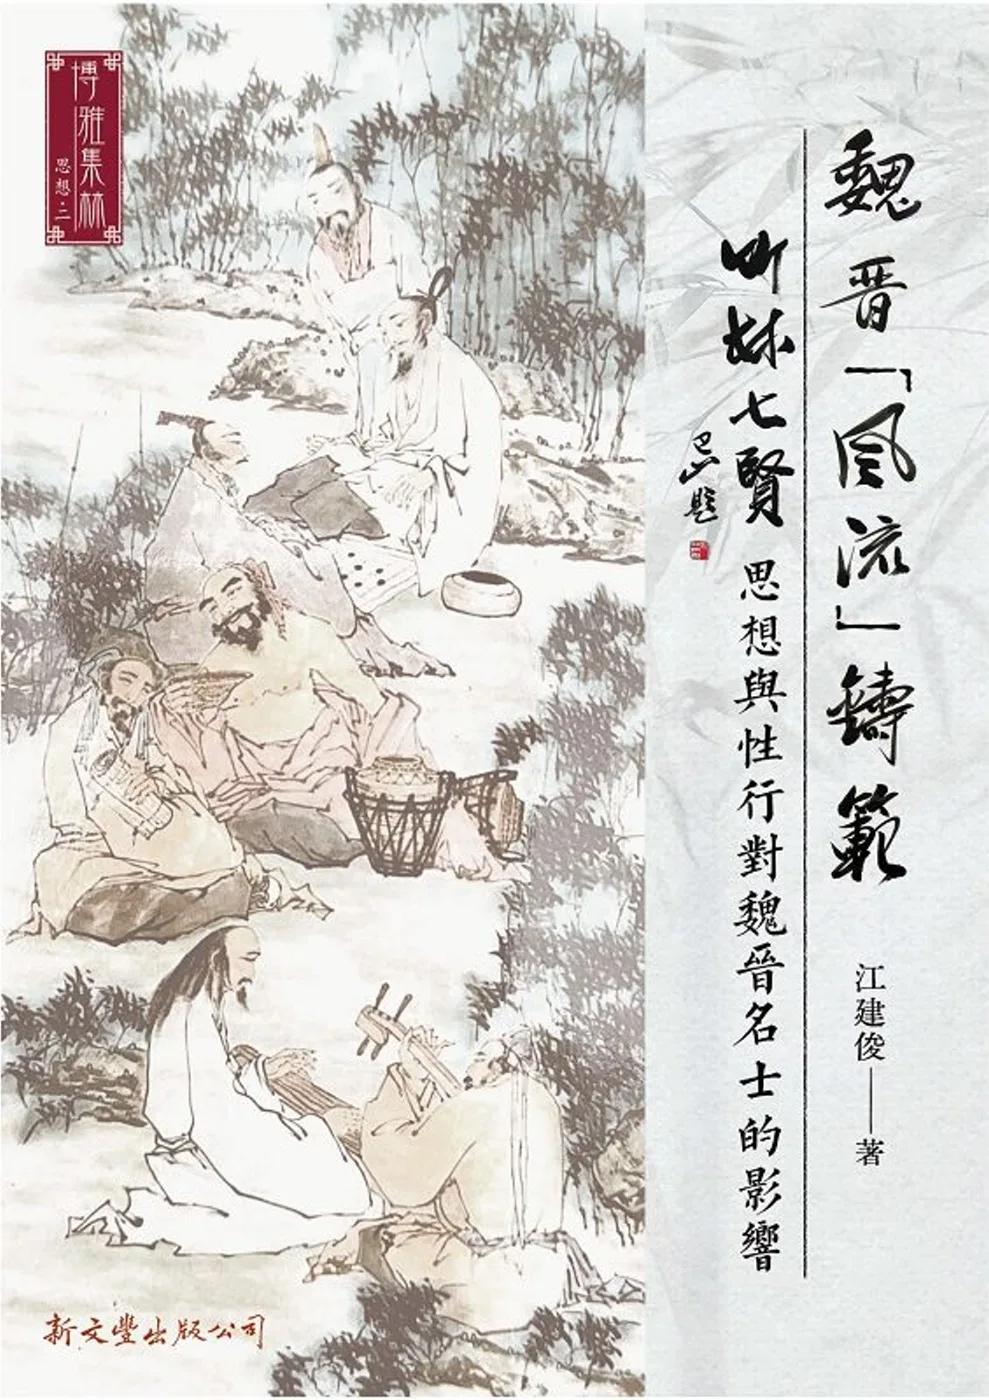 魏晉「風流」鑄範
竹林七賢思想與性行對魏晉名士的影響
江建俊——著
博雅集林
思想·二
新文豐出版公司